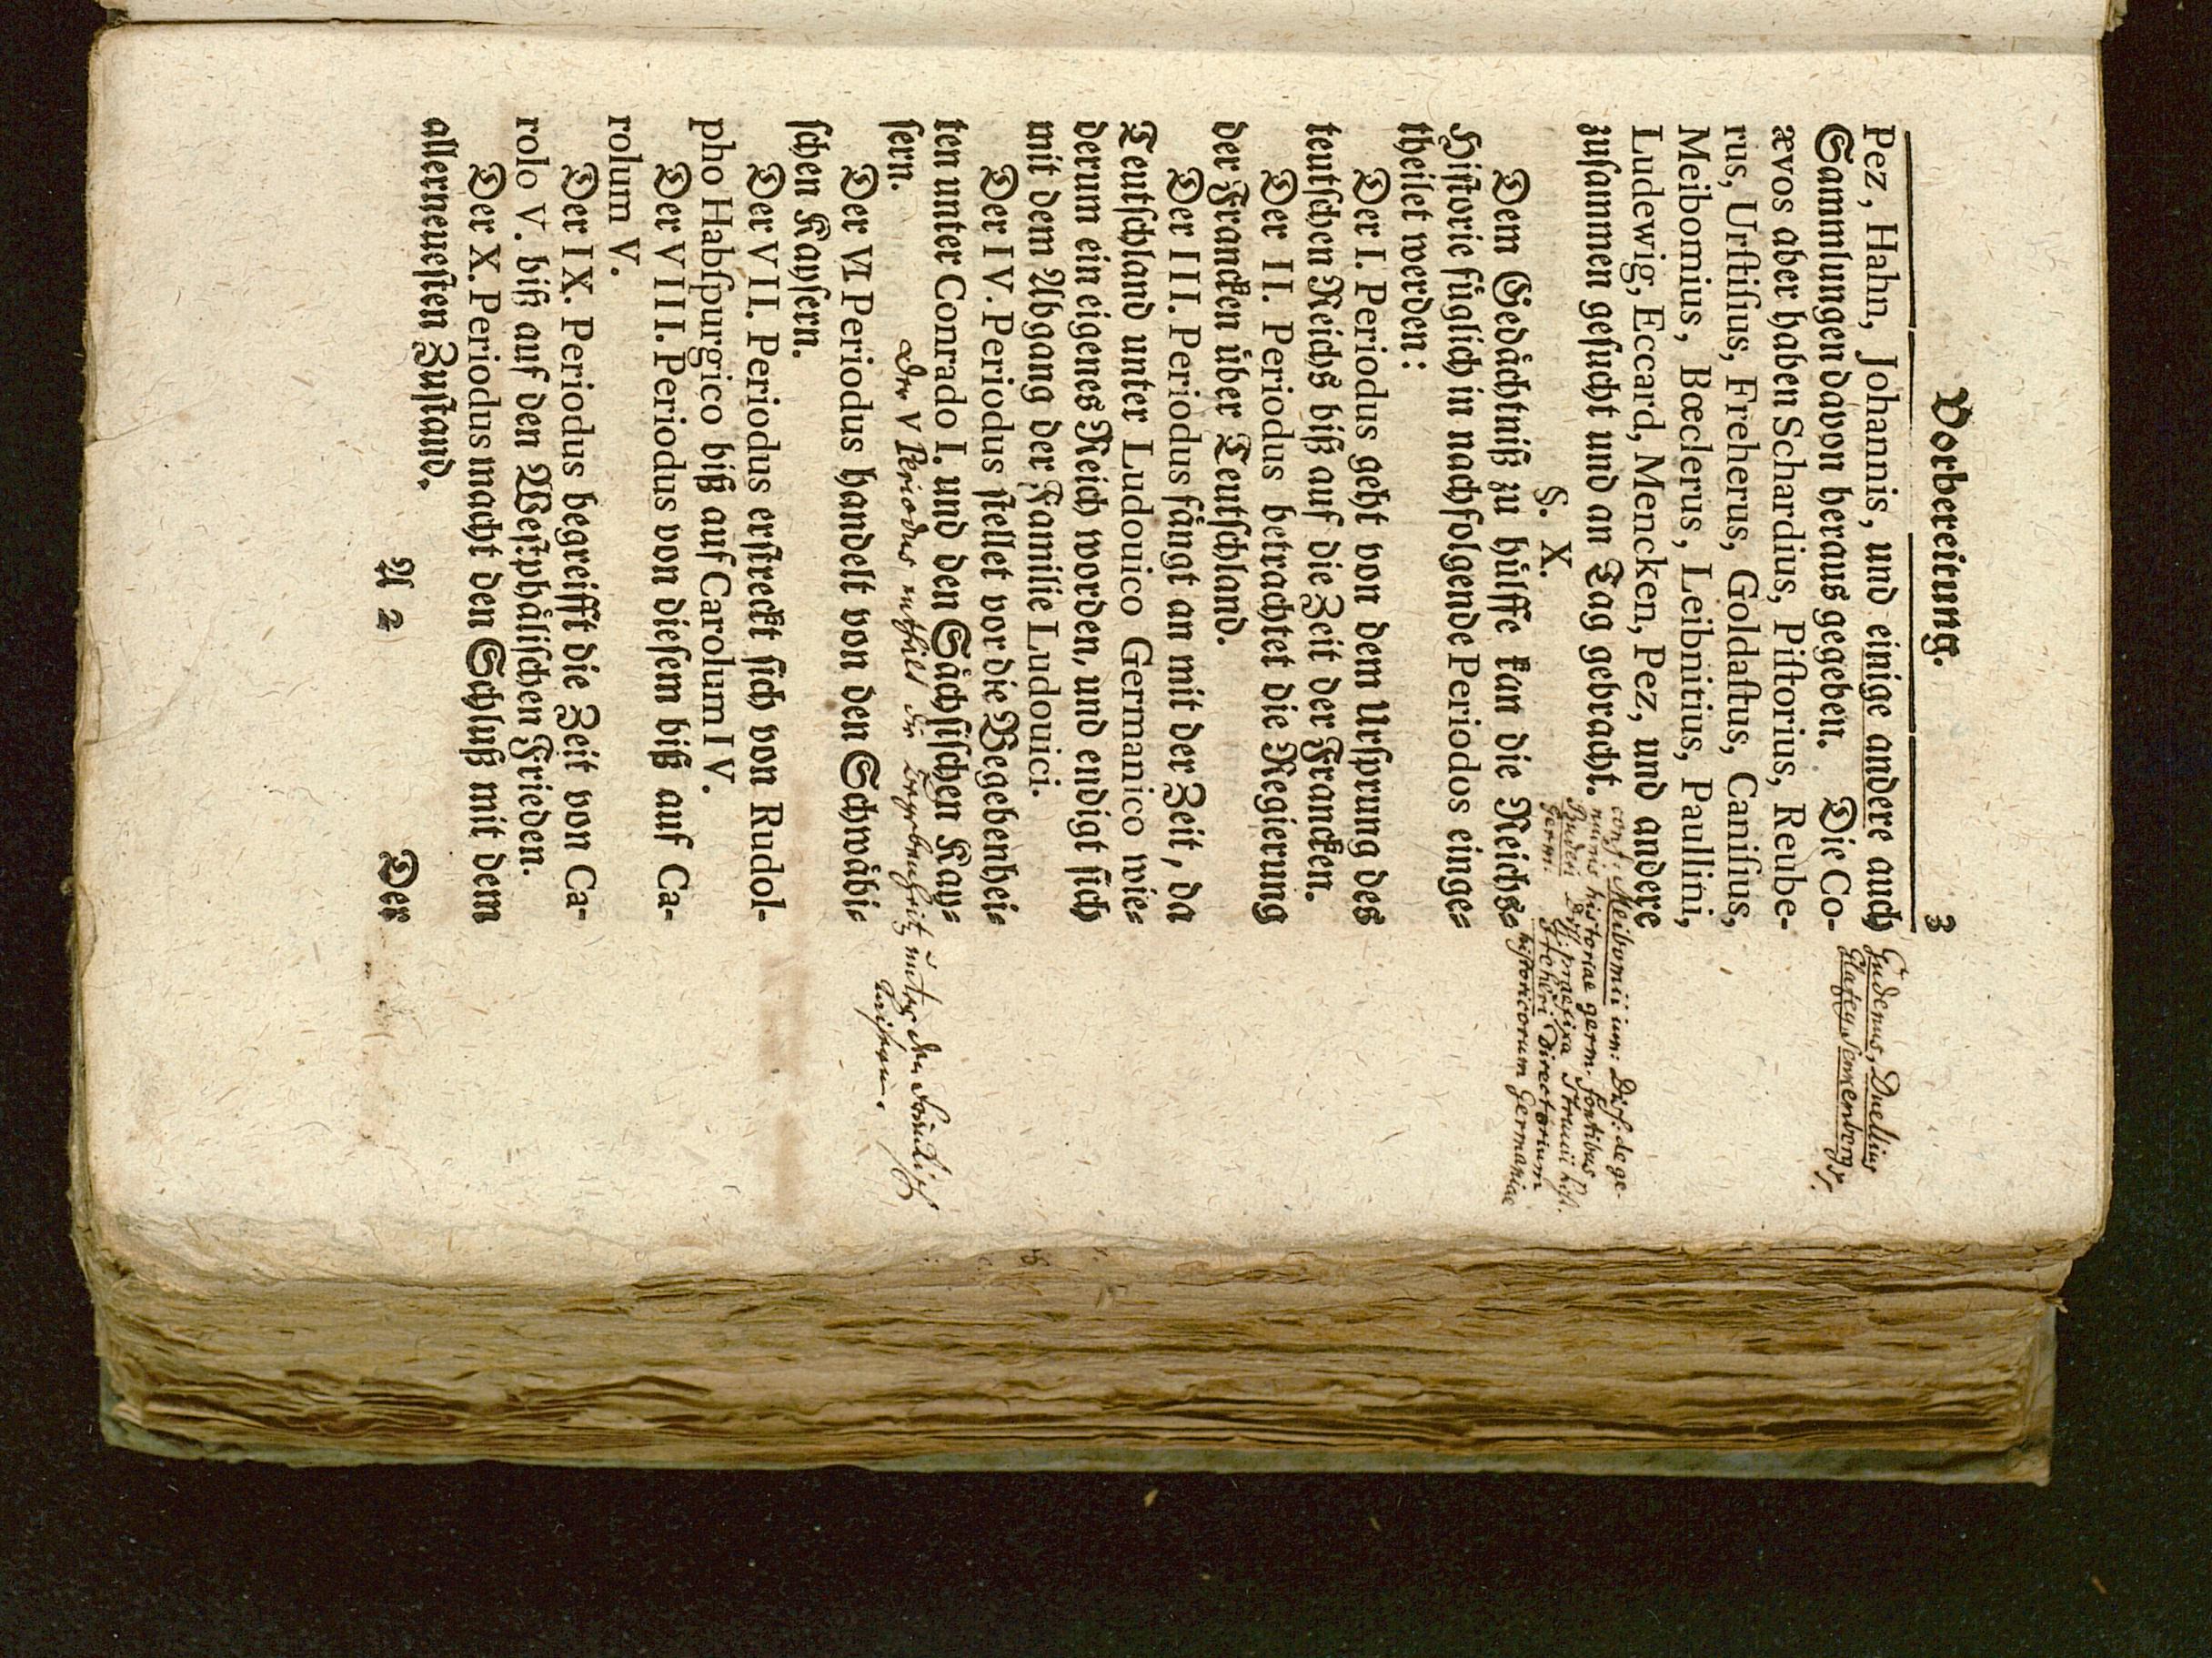 Vorbereitung. 3
Pez, Hahn, Johannis, und einige andere auch
Gudenus, Duellius
Sammlungen davon heraus gegeben. Die Co-
Glafey, Senkenberg
ævos aber haben Schardius, Piſtorius, Reube-
rus, Urſtiſius, Freherus, Goldaſtus, Caniſius,
Meibomius, Bœclerus, Leibnitius, Paullini,
Ludewig, Eccard, Mencken, Pez, und andere
zuſammen geſucht und an Tag gebracht.
conf. Meibomii iun: Diſſ: de ge-
nuinis historiae germ. fontibus
Buderi Diſſ. praefixa Struvii hiſt.
germ. Freheri Directorium
hiſtoricorum Germaniae
§. X.
Dem Gedächtniß zu hülffe kan die Reichs-
Hiſtorie füglich in nachfolgende Periodos einge-
theilet werden:
Der I. Periodus geht von dem Urſprung des
teutſchen Reichs biß auf die Zeit der Francken.
Der II. Periodus betrachtet die Regierung
der Francken über Teutſchland.
Der III. Periodus fängt an mit der Zeit, da
Teutſchland unter Ludouico Germanico wie-
derum ein eigenes Reich worden, und endigt ſich
mit dem Abgang der Familie Ludouici.
Der IV. Periodus ſtellet vor die Begebenhei-
ten unter Conrado I. und den Sächſiſchen Kay-
ſern.
Der V Periodus enthält die Begebenheiten unter den Fränkiſch
Kaiſern.
Der VI Periodus handelt von den Schwäbi-
ſchen Kayſern.
Der VII. Periodus erſtreckt ſich von Rudol-
pho Habſpurgico biß auf Carolum IV.
Der VIII. Periodus von dieſem biß auf Ca-
rolum V.
Der IX. Periodus begreifft die Zeit von Ca-
rolo V. biß auf den Weſtphäliſchen Frieden.
Der X. Periodus macht den Schluß mit dem
allerneueſten Zuſtand.
A 2 Der